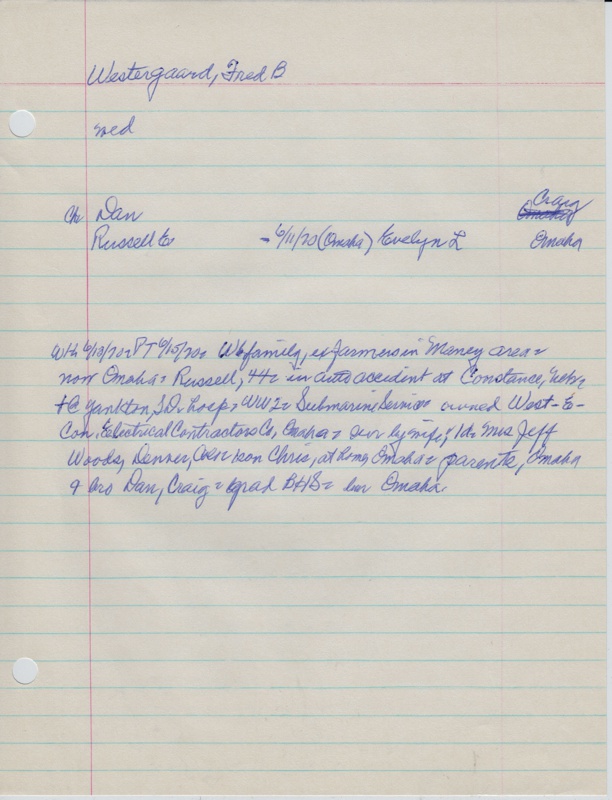 Westergaard, Fred B
med
Ch Dan Craig
Russell E - 6/11/70 (Omaha) Evelyn L Omaha
WH 6/18/70 = PT 6/15/70 = W family, exfarmers in Maney area =
now Omaha = Russell, 44 = in auto accident at Constance, Nebr =
+ @ Yankton, S.D. hosp = WW2 = Submarine Service owned West-E-
Con, Electrical Contractors Co, Omaha = sur by wife, 1 d = Mrs Jeff
Woods, Denver, Colo = 1 son Chris, at home, Omaha = parents, Omaha
& bro Dan, Craig = grad BHS = bur Omaha